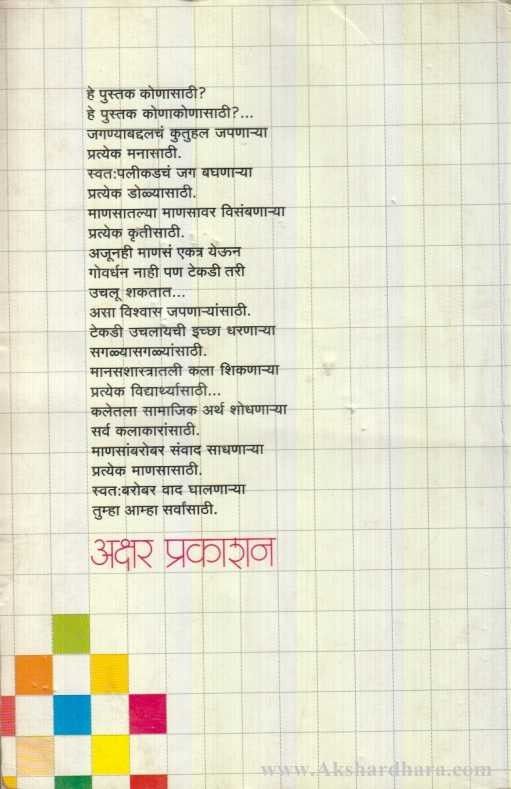 हे पुस्तक कोणासाठी?
हे पुस्तक कोणाकोणासाठी?...
जगण्याबद्दलचं कुतुहल जपणाऱ्या
प्रत्येक मनासाठी.
स्वत:पलीकडचं जग बघणाऱ्या
प्रत्येक डोळ्यासाठी.
माणसातल्या माणसावर विसंबणाऱ्या
प्रत्येक कृतीसाठी.
अजूनही माणसं एकत्र येऊन
गोवर्धन नाही पण टेकडी तरी
उचलू शकतात...
असा विश्वास जपणाऱ्यांसाठी.
टेकडी उचलायची इच्छा धरणाऱ्या
सगळ्यासगळ्यांसाठी.
मानसशास्त्रातली कला शिकणाऱ्या
प्रत्येक विद्यार्थ्यासाठी...
कलेतला सामाजिक अर्थ शोधणाऱ्या
सर्व कलाकारांसाठी.
माणसांबरोबर संवाद साधणाऱ्या
प्रत्येक माणसासाठी.
स्वत:बरोबर वाद घालणाऱ्या
तुम्हा आम्हा सर्वांसाठी.
अक्षर प्रकाशन
www.Akshardhara.com